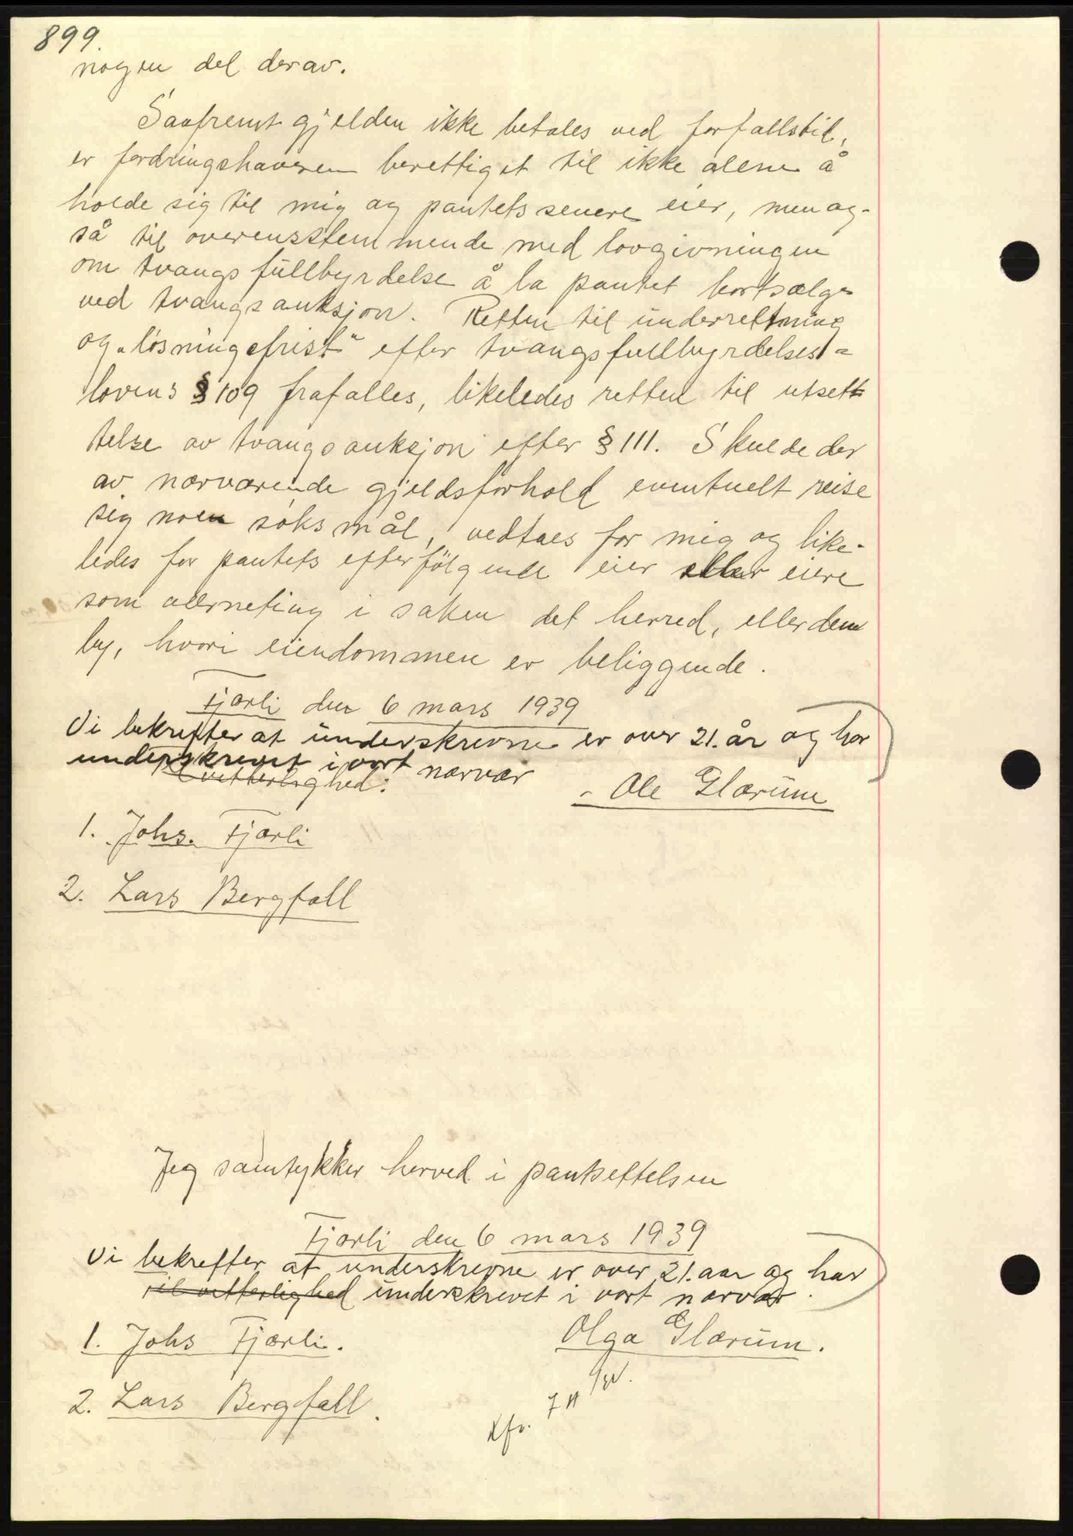 899.
nogen del derav.
Saafremt gjelden ikke betales ved forfallstid,
er fordringshaveren berettiget til ikke alene å
holde sig til mig og pantets senere eier, men og-
så til overensstemmende med lovgivningen
om tvangsfullbyrdelse å la pantet bortsælge
ved tvangsauksjon. Retten til underretning
og „løsningsfrist" efter tvangsfullbyrdelses-
lovens § 109 frafalles, likeledes retten til utsett
telse av tvangsauksjon efter § 111. Skulde der
av nærværende gjeldsforhold eventuelt reise
sig noen søksmål, vedtaes for mig og like-
ledes for pantets efterfølgende eier eller eiere
som værneting i saken det herred, eller den
by, hvori eiendommen er beliggende.
Fjærli den 6 mars 1939
Vi bekrefter at underskrevne er over 21. år og har
underskrevet i vort nærvær
til vitterlighed:
Ole Glærum
1. Johs. Fjærli
2. Lars Bergfall
Jeg samtykker herved i pantsettelsen
Fjærli den 6 mars 1939
Vi bekrefter at underskrevne er over 21. aar og har
til vitterlighed underskrevet i vort nærvær.
Olga Glærum.
1. Johs Fjærli.
2. Lars Bergfall.
Kfr.